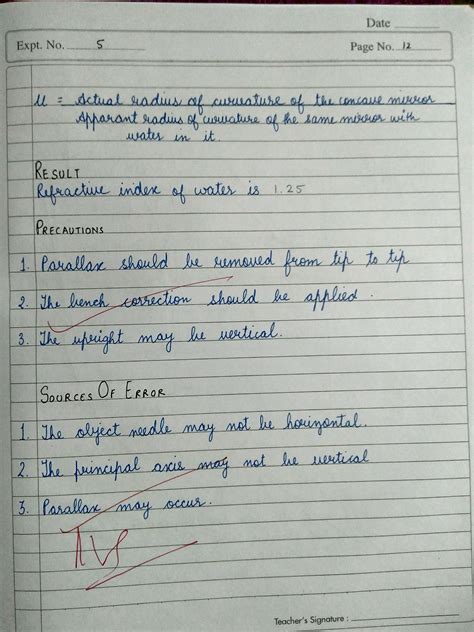 Date
Expt. No. 5
Page No. 12
u = Actual radius of curvature of the concave mirror
Apparant radius of curvature of the same mirror with
water in it.
RESULT
Refractive index of water is 1.25
PRECAUTIONS
1. Parallax should be removed from tip to tip
2. The bench correction should be applied.
3. The upright may be vertical.
SOURCES OF ERROR
1. The object needle may not be horizontal.
2. The principal axis may not be vertical
3. Parallax may occur.
Teacher's Signature :